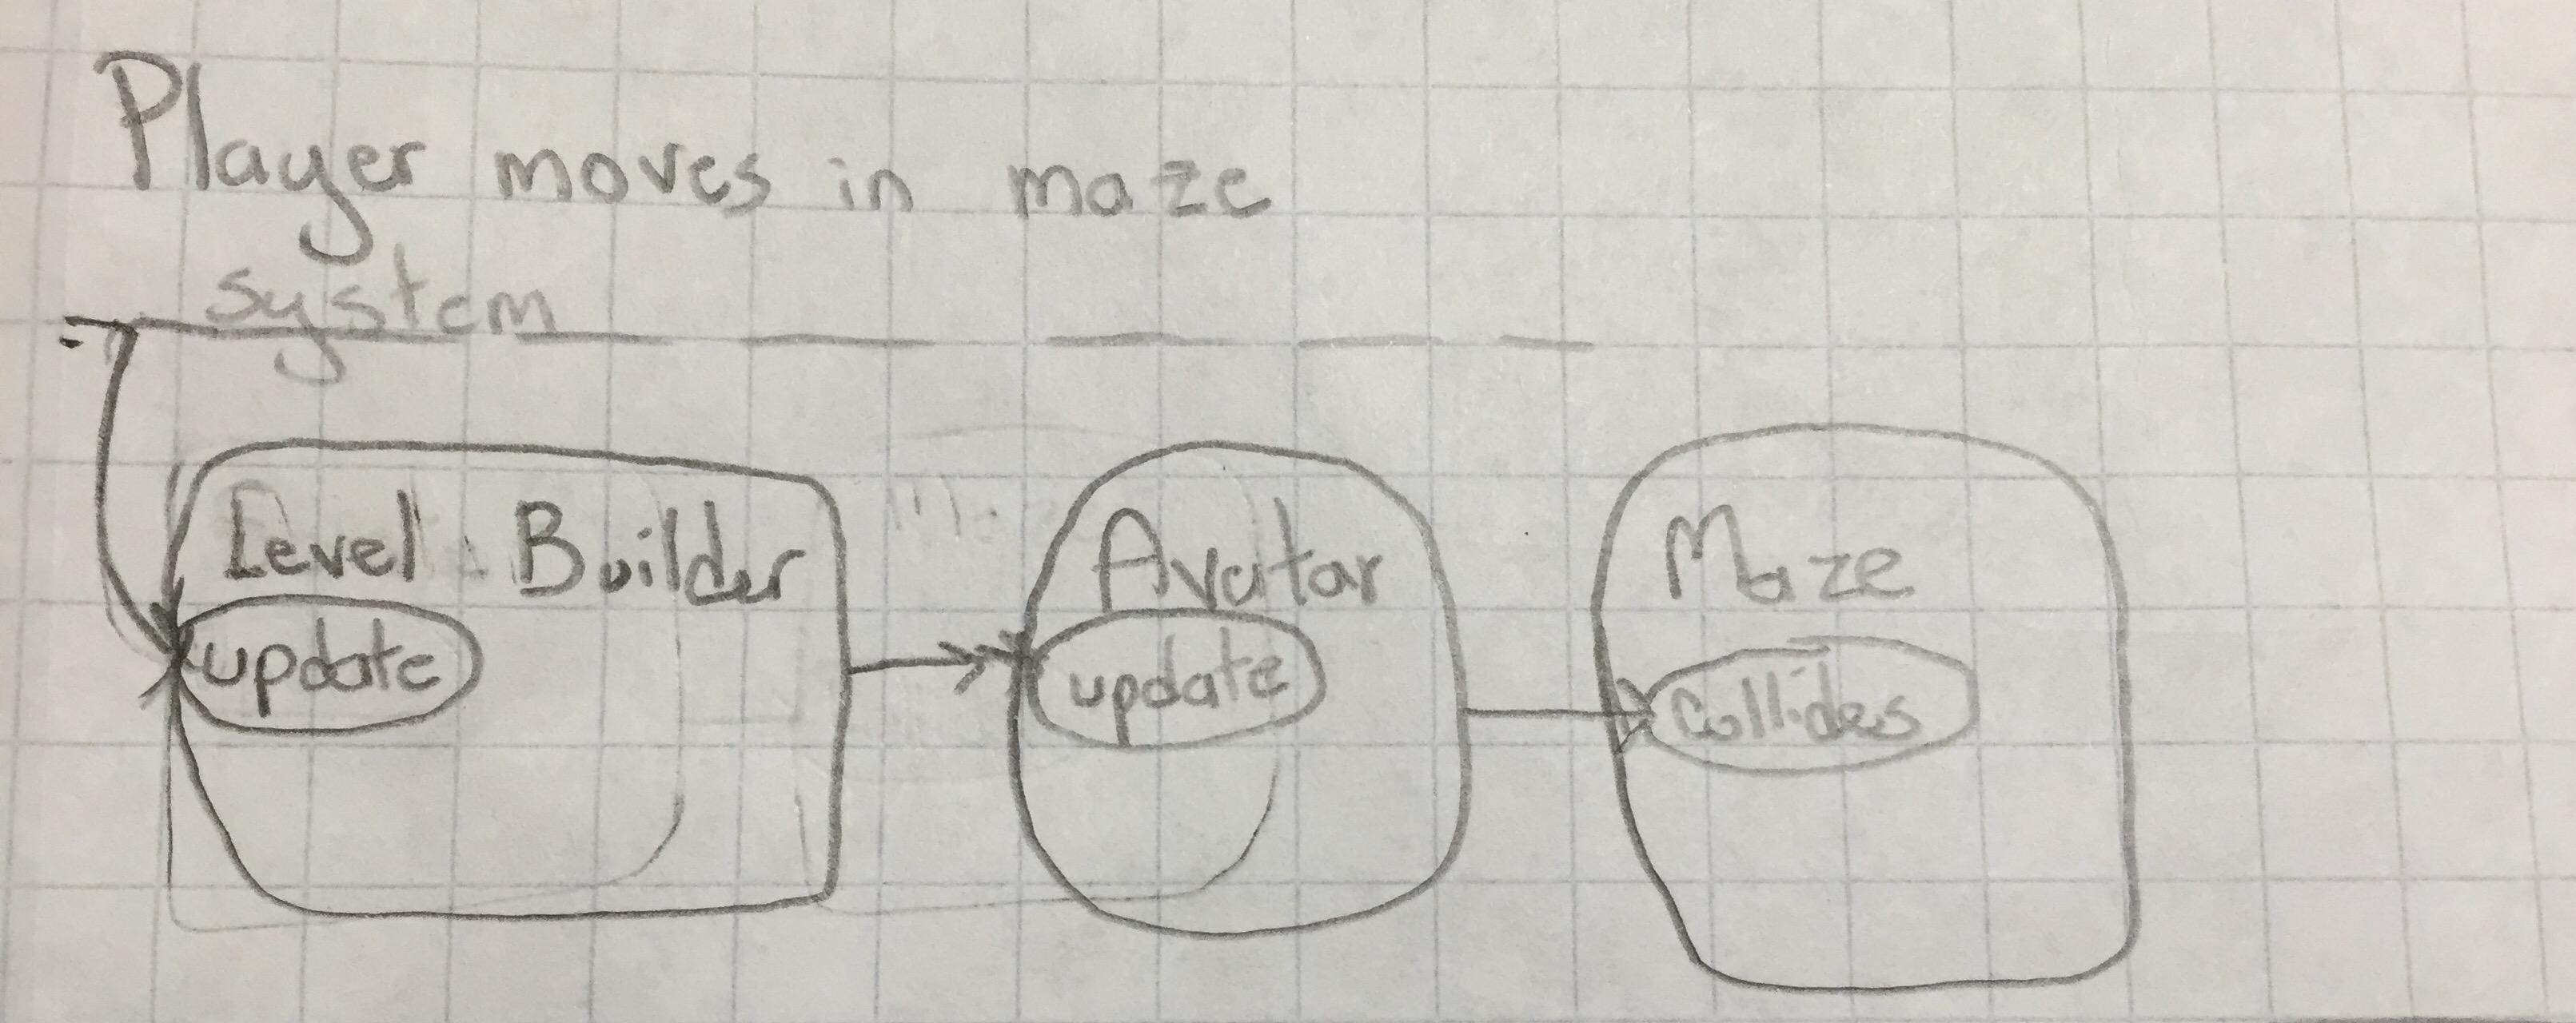 Player moves in maze
system
Level Builder
update
Avatar
update
Maze
Collides